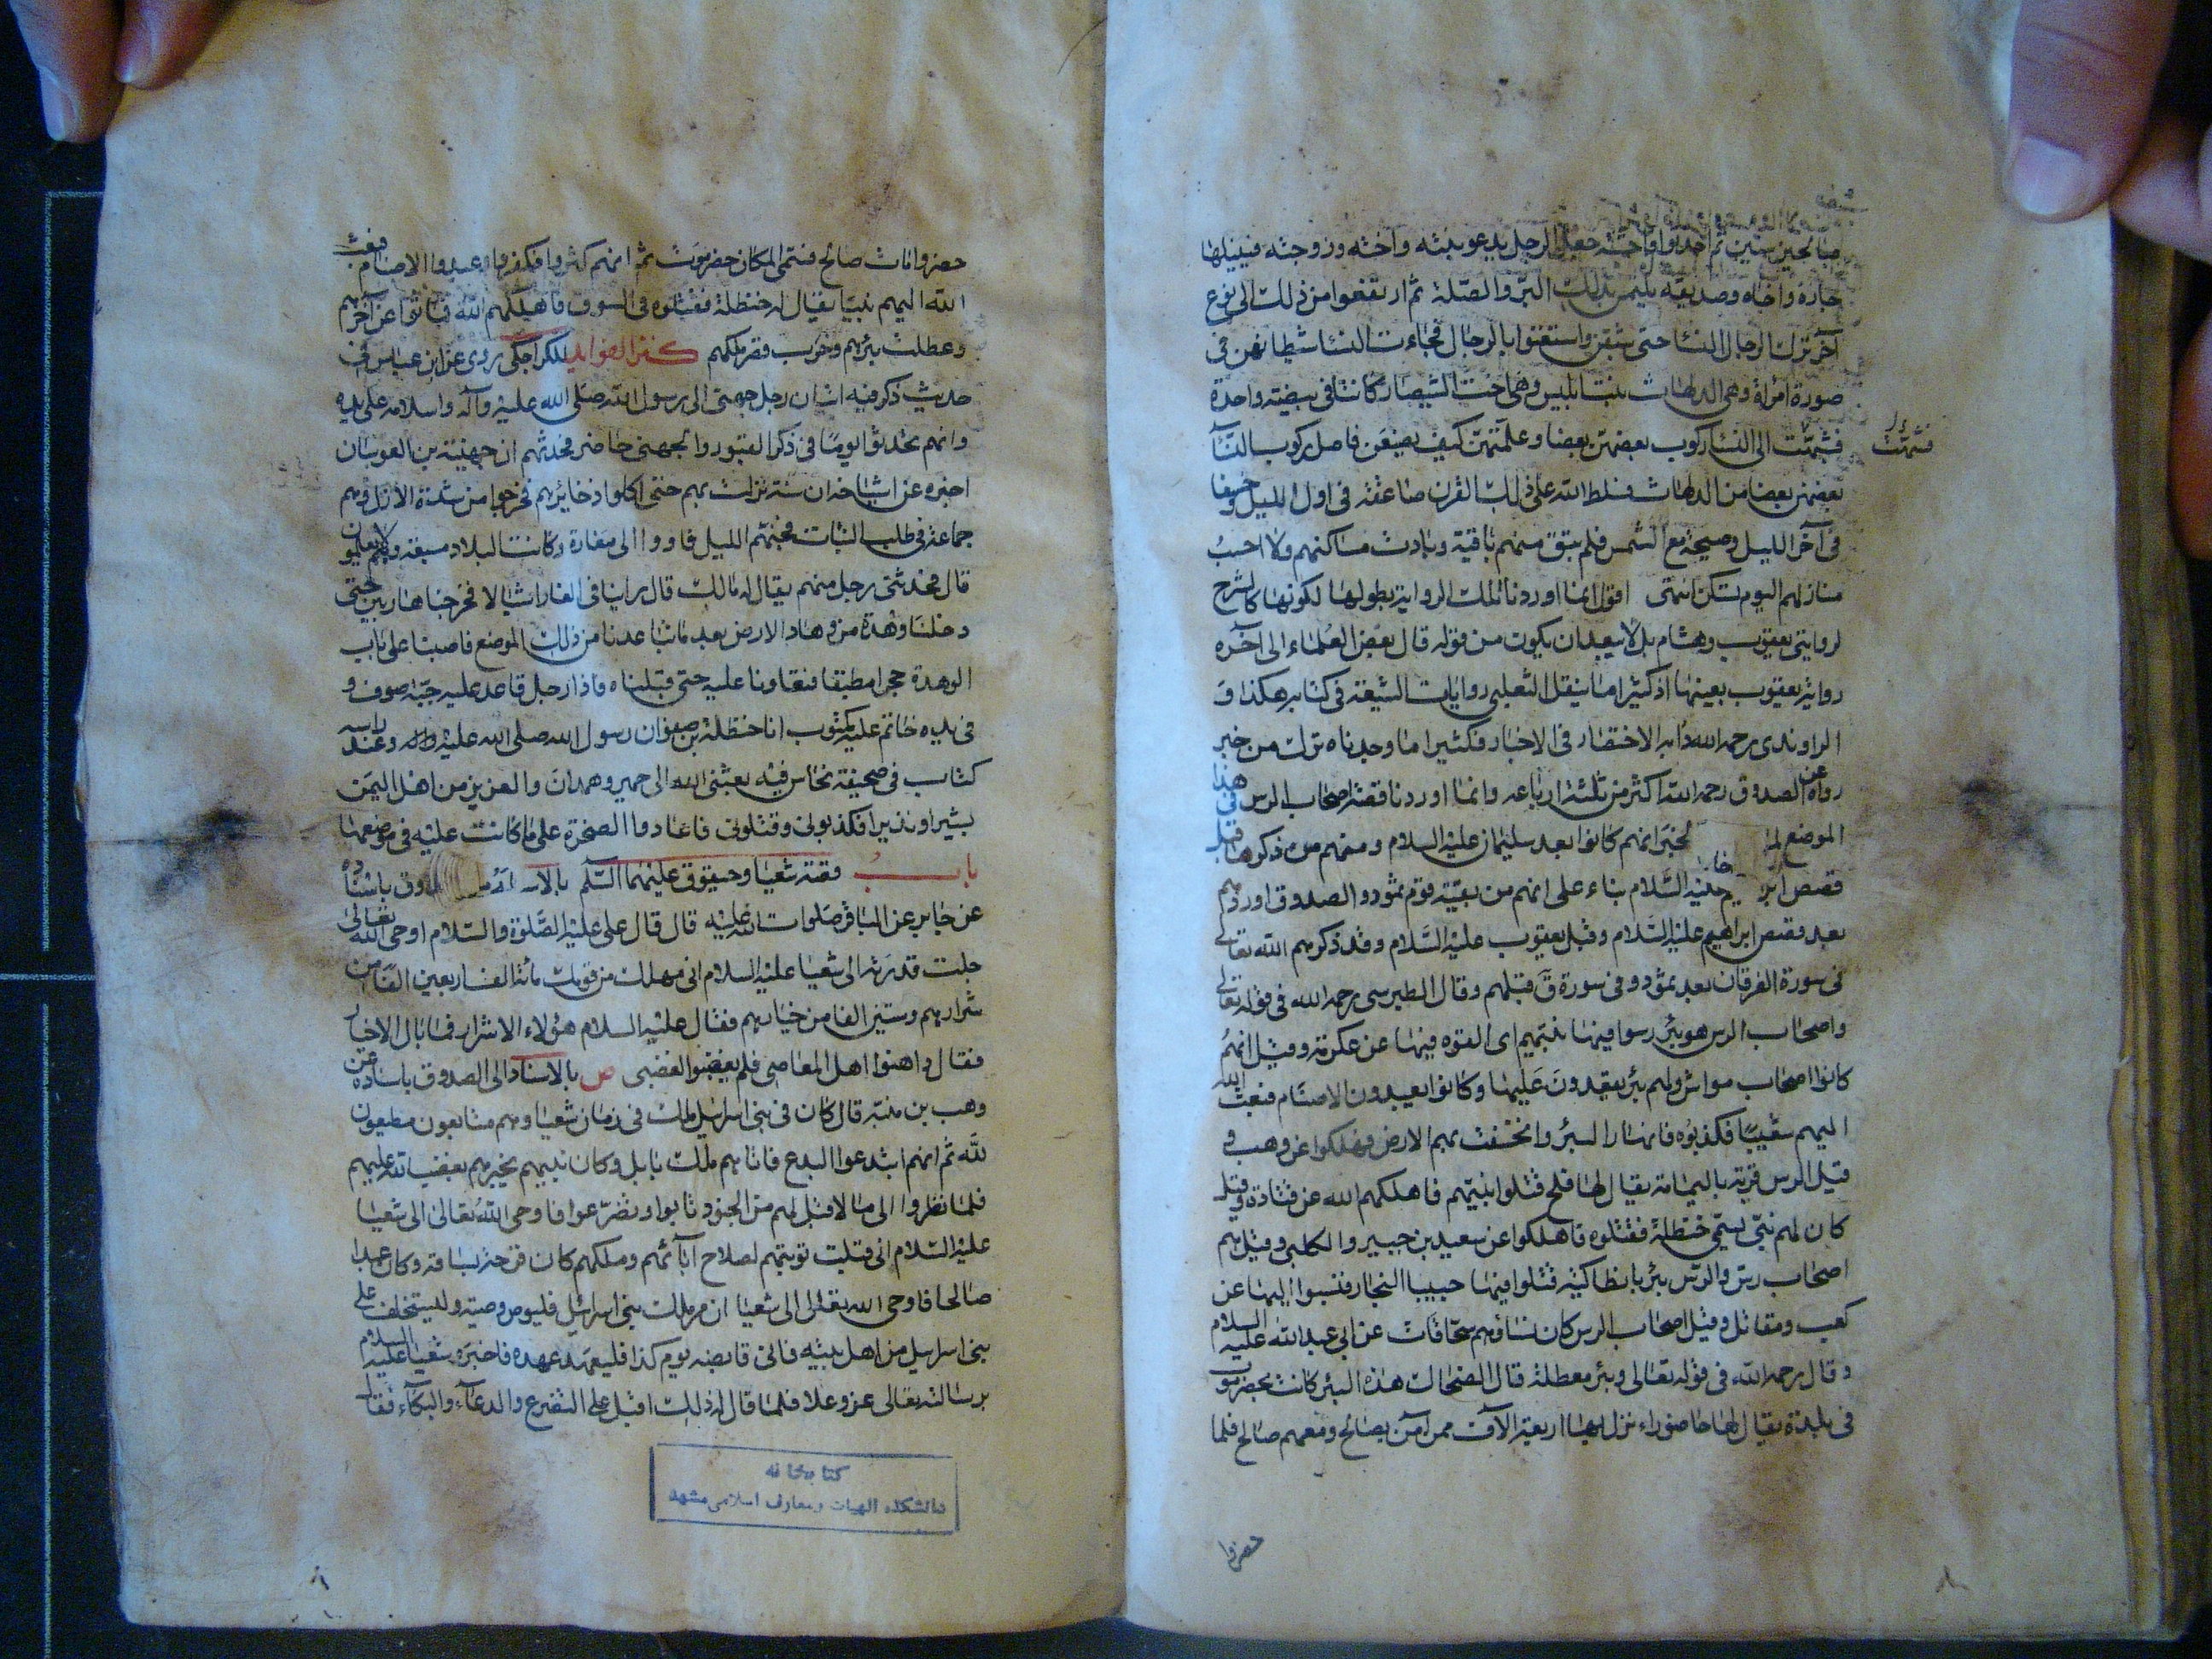 صالحين سنين ثم احدثوا فاحشة جعل الرجل يدعو بنته واخته وزوجته فينيلها
جاره واخاه وصديقه يلتمس بذلك البر والصلة ثم ارتفعوا من ذلك الى نوع
آخر ترك الرجال النساء حتى شبقن واستغنوا بالرجال فجاءت النساء شيطانهن في
صورة امرأة وهي الدلهاث بنت ابليس وهي اخت الشيصار كانتا في بيضة واحدة
فشهت الى النساء ركوب بعضهن بعضا وعلمتهن كيف يصنعن فاصل ركوب النساء
فشهت
بعضهن بعضا من الدلهاث فسلط الله على ذلك القرن صاعقة في اول الليل وخسفا
في آخر الليل وصيحة مع الشمس فلم يبق منهم باقية وبادت مساكنهم ولا احسب
منازلهم اليوم تسكن انتهى اقول انما اوردنا تلك الرواية بطولها لكونها كالشرح
لروايتي يعقوب وهشام بل لا يبعد ان يكون من قوله قال بعض العلماء الى آخره
رواية يعقوب بعينها اذ كثيرا ما ينقل الثعلبي روايات الشيعة في كتابه هكذا و
الراوندي رحمه الله دابه الاختصار في الاخبار فكثيرا ما وجدناه ترك من خبر
رواه عن الصدوق رحمه الله اكثر من ثلثة ارباعه وانما اوردنا قصة اصحاب الرس في هذا
الموضع لما الخبر انهم كانوا بعد سليمان عليه السلام ومنهم من ذكرها قبل
قصص عليه السلام بناء على انهم من بقية قوم ثمود والصدوق اوردهم
بعد قصص ابراهيم عليه السلام وقبل يعقوب عليه السلام وقد ذكرهم الله تعالى
في سورة الفرقان بعد ثمود وفي سورة ق قبلهم وقال الطبرسي رحمه الله في قوله تعالى
واصحاب الرس هو بئر رسوا فيها نبيهم اي القوه فيها عن عكرمة وقيل انهم
كانوا اصحاب مواش ولهم بئر يقعدون عليها وكانوا يعبدون الاصنام فبعث الله
اليهم شعيبا فكذبوه فانهار البئر وانخسفت بهم الارض فهلكوا عن وهب و
قيل الرس قرية باليمامة يقال لها فلج قتلوا نبيهم فاهلكهم الله عن قتادة وقيل
كان لهم نبي يسمى حنظلة فقتلوه فاهلكوا عن سعيد بن جبير والكلبي وقيل هم
اصحاب رس والرس بئر بانطاكية قتلوا فيها حبيبا النجار فنسبوا اليها عن
كعب ومقاتل وقيل اصحاب الرس كان نساؤهم سحاقات عن ابي عبد الله عليه السلام
وقال رحمه الله في قوله تعالى وبئر معطلة قال الضحاك هذه البئر كانت بحضرموت
في بلدة يقال لها حاضوراء نزل بها اربعة الآف ممن آمن بصالح ومعهم صالح فلما
حضروا
حضروا مات صالح فسمي المكان حضرموت ثم انهم كثروا فكفروا وعبدوا الاصنام فبعث
الله اليهم نبيا يقال له حنظلة فقتلوه في السوق فاهلكهم الله فماتوا عن آخرهم
وعطلت بئرهم وخرب قصر ملكهم كنز الفوايد للكراجكي روى عن ابن عباس في
حديث ذكر فيه اتيان رجل جهني الى رسول الله صلى الله عليه وآله واسلامه على يده
وانهم تحدثوا يوما في ذكر القبور والجهني حاضر فحدثهم ان جهينة بن العوسان
اخبره عن اشياخه ان سنة نزلت بهم حتى اكلوا ذخائرهم فخرجوا من شدة الازل وهم
جماعة في طلب النبات فجنهم الليل فاووا الى مغارة وكانت البلاد مسبعة وهم لا يعلمون
قال فحدثني رجل منهم يقال له مالك قال راينا في الغار اشبالا فخرجنا هاربين حتى
دخلنا وهدة من وهاد الارض بعد ما تباعدنا من ذلك الموضع فاصبنا على باب
الوهدة حجرا مطبقا فتعاونا عليه حتى قلبناه فاذا رجل قاعد عليه جبة صوف و
في يده خاتم عليه مكتوب انا حنظلة بن صفوان رسول الله صلى الله عليه واله وعند راسه
كتاب في صحيفة نحاس فيه بعثني الله الى حمير وهمدان والعزيز من اهل اليمن
بشيرا ونذيرا فكذبوني وقتلوني فاعادوا الصخرة على ما كانت عليه في موضعها
باب قصة شعيا وحيقوق عليهما السلم بالاسـ ـدوق باسناده
عن جابر عن الباقر صلوات الله عليه قال قال علي عليه الصلوة والسلام اوحى الله تعالى
جلت قدرته الى شعيا عليه السلام اني مهلك من قومك مائة الف اربعين الفا من
شرارهم وستين الفا من خيارهم فقال عليه السلام هؤلاء الاشرار فما بال الاخيار
فقال داهنوا اهل المعاصي فلم يغضبوا لغضبي ص بالاسناد الى الصدوق باسناده عن
وهب بن منبه قال كان في بني اسرائيل ملك في زمان شعيا وهم متابعون مطيعون
لله ثم انهم ابتدعوا البدع فاتاهم ملك بابل وكان نبيهم يخبرهم بغضب الله عليهم
فلما نظروا الى ما لا قبل لهم من الجنود تابوا وتضرعوا فاوحى الله تعالى الى شعيا
عليه السلام اني قبلت توبتهم لصلاح آبائهم وملكهم كان قرحة بساقه وكان عبدا
صالحا فاوحى الله تعالى الى شعيا ان مر ملك بني اسرائيل فليوص وصية وليستخلف على
بني اسرائيل من اهل بيته فاني قابضه يوم كذا فليعهد عهده فاخبره شعيا عليه السلام
برسالته تعالى عز وعلا فلما قال له ذلك اقبل على التضرع والدعاء والبكاء فقال
كتابخانه
دانشكده الهيات ومعارف اسلامى مشهد